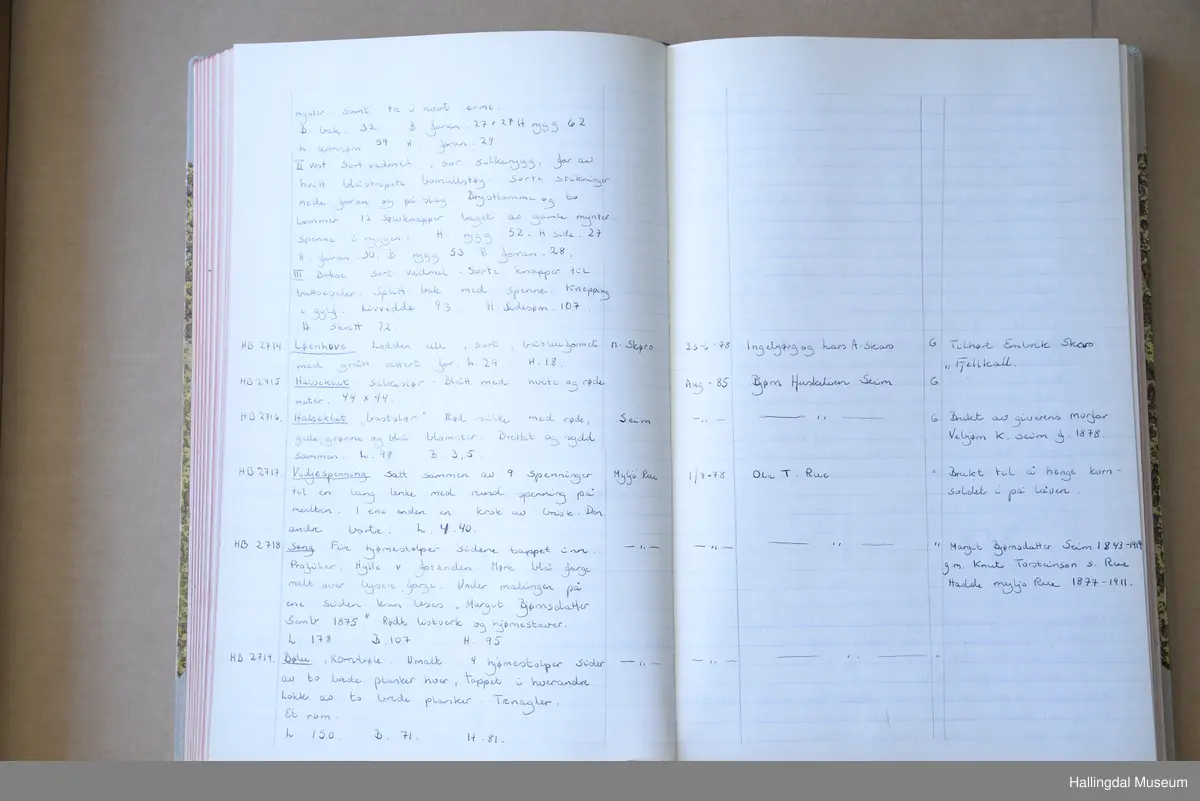 mynter. Samt tre i hvert erme.
B bak. 32 B foran. 27+27 H rygg 62
L ermsøm 59 H. foran. 24
II vest Sort vadmel, sort silkerygg, for av
hvitt blåstripete bomullstøy. Sorte stikninger
nede foran og på slag Brystlomme og to
lommer 12 sølvknapper laget av gamle mynter
spenne i ryggen. H. rygg 52. H side. 27
H. foran. 50. B rygg 53 B foran. 28.
III Bukse sort vadmel. Sorte knapper til
bukseseler. Splitt bak med spenne. Knepping
i gylf. Livvidde 93 H. Sidesøm. 107
H Skritt 72.
HB 2714 Løenhuve Lodden ull, sort, båtluefformet n. Skaro 25-6-78 Ingebjørg og Lars A. Skaro G Tilhørt Embrik Skaro
med grått vattert for. L. 29 H. 18. " Fjellkall.
HB 2715 Halseklut silkeslør. Blått med hvite og røde Aug - 85 Bjørn Huskelien Seim G
ruter. 44 x 44.
HB 2716. Halseklut, "bastslør" Rød silke med røde, Seim -"- -"- G Brukt av giverens morfar
gule, grønne og blå blomster. Brettet og sydd Vebjørn K. Seim f. 1878.
sammen. L. 98 B. 3,5.
HB 2717. Vidjespenning Satt sammen av 9 spenninger Myljo Rue 1/7-78 Ola T. Rue " Brukt til å henge korn-
til en lang lenke med rund spenning på soldet i på låven.
midten. I ene enden en krok av brisk. Den
andre borte. L. 4.40.
HB 2718 Seng Fire hjørnestolper sidene tappet inn. -"- -"- -"- " Margit Bjørnsdatter Seim 1843-1919
Profiler. Hylle v fotenden. Mørk blå farge g.m. Knut Torsteinson s. Rue
malt over lysere farge. Under malingen på Hadde myljo Rue 1877-1911.
ene siden kan leses "Margit Bjørnsdatter
Seim 1875" Rødt listverk og hjørnestaver.
L. 178 B. 107 H. 95
HB 2719. Bøle, Kornbøle. Umalt. 4 hjørnestolper sider -"- -"- -"- "
av to brede planker hver, tappet i hverandre.
Lokk av to brede planker. Trenagler.
Et rom.
L 150. B. 71. H. 81.
Hallingdal Museum